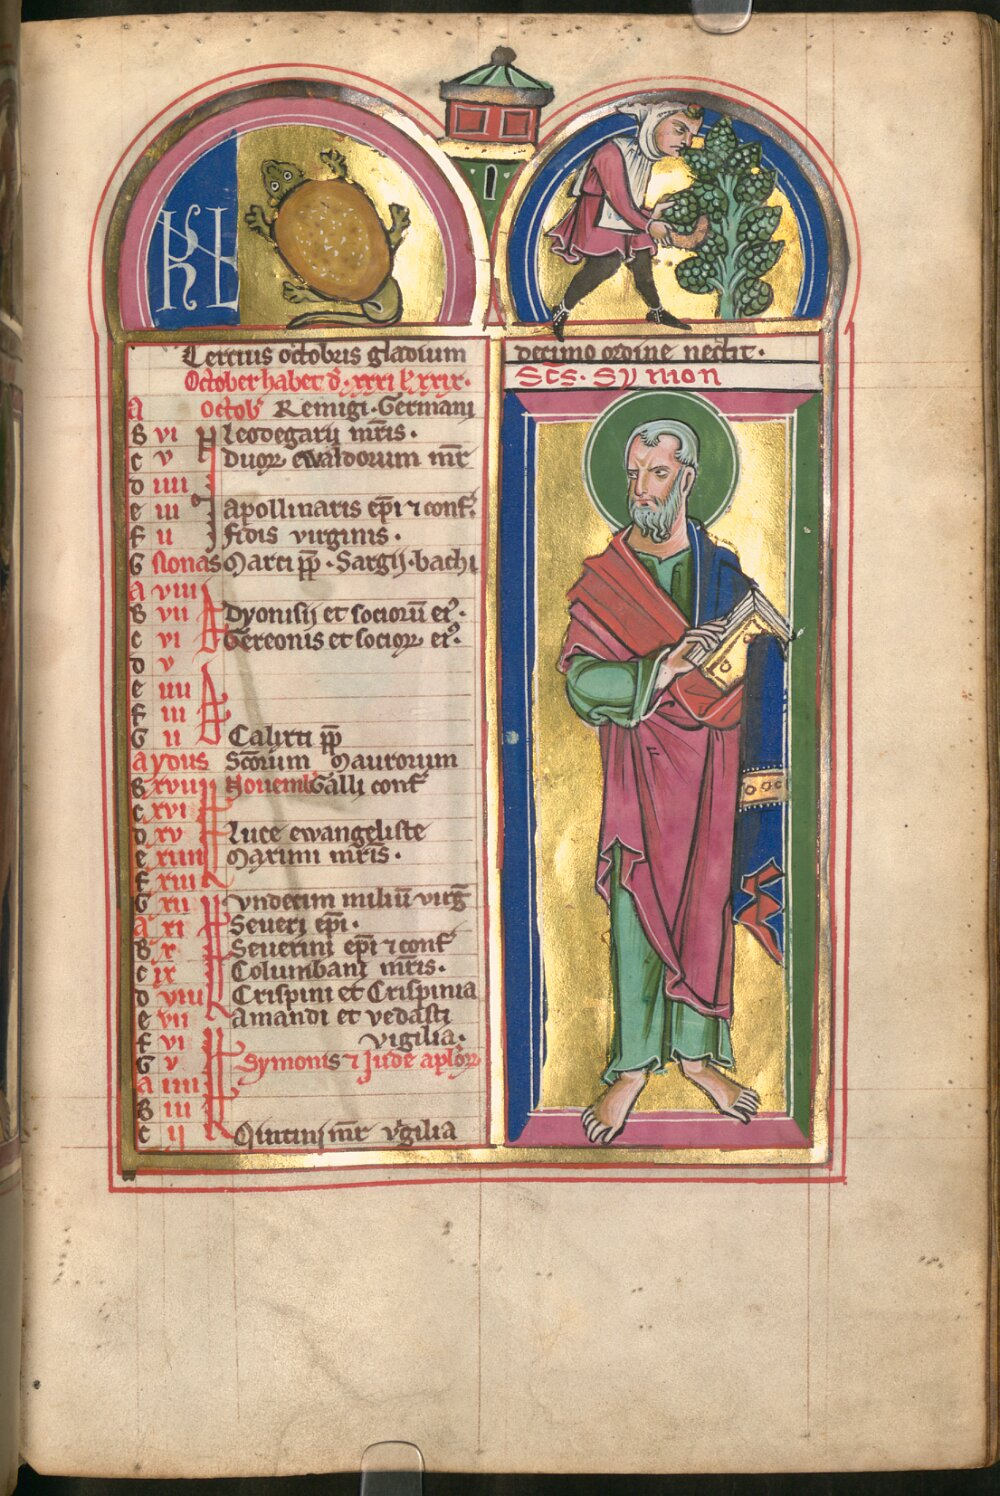 KL
Tercius octobris gladium decimo ordine nectit.
October habet d̄. xxxi l̄ xxix.
A Octobʼ Remigi. Germani
B vi N Leodegarij mr̄is.
c v Duoꝝ ewaldorum mr̄
d iiii
e iii Apollinaris ep̄i ⁊ conf.
f ii Fidis virginis.
G Nonas Marci pp̄. Sargij. bachi
A viii
B vii Dyonisij et socioru̅ eiꝰ.
c vi Gereonis et socioꝝ eiꝰ.
d v
e iiii
f iii
G ii Calixti pp̄
A ydus Sc̄orum Maurorum
B xvii Nouemb Galli conf
c xvi
d xv Luce ewangeliste
e xiiii Maximi mr̄is.
f xiii
G xii Vndecim miliu̅ virg̅
A xi Seueri ep̄i.
B x Seuerini ep̄i ⁊ conf
c ix Columbani mr̄is.
d viii Crispini et Crispinia
e vii Amandi et vedasti
f vi vigilia.
G v Symonis ⁊ Jude apl̄oꝝ
A iiii
B iii
c ii Qintini mr̄ vigilia
Scs. Symon